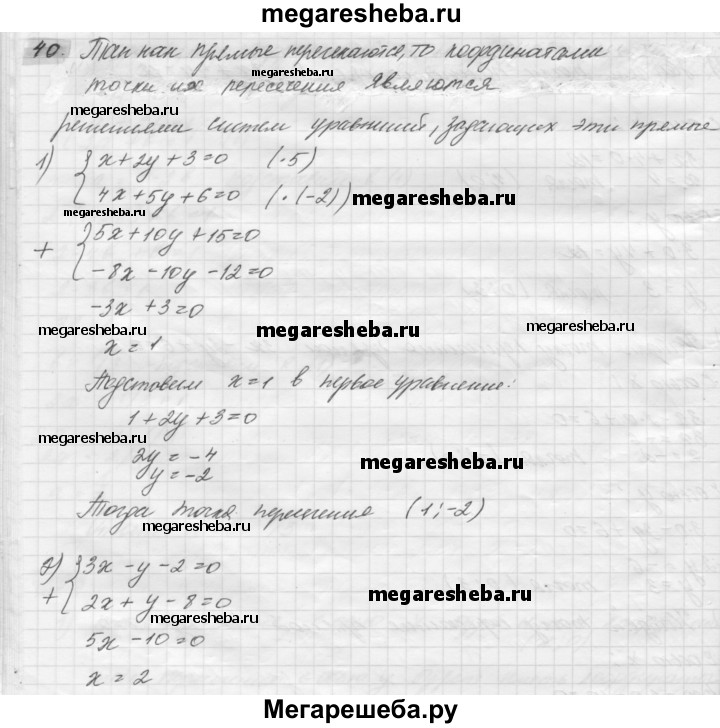 megaresheba.ru
40. Так как прямые пересекаются, то координатами
megaresheba.ru
точки их пересечения являются
megaresheba.ru
решениями систем уравнений, задающих эти прямые
1) { x + 2y + 3 = 0 (·5)
{ 4x + 5y + 6 = 0 (·(-2))
megaresheba.ru
megaresheba.ru
+ { 5x + 10y + 15 = 0
{ -8x - 10y - 12 = 0
-3x + 3 = 0
megaresheba.ru
megaresheba.ru
megaresheba.ru
x = 1
Подставим x = 1 в первое уравнение:
1 + 2y + 3 = 0
megaresheba.ru
2y = -4
megaresheba.ru
y = -2
Тогда точка пересечения (1; -2)
megaresheba.ru
2) { 3x - y - 2 = 0
+ { 2x + y - 8 = 0
megaresheba.ru
megaresheba.ru
5x - 10 = 0
x = 2
Мегарешеба.ру